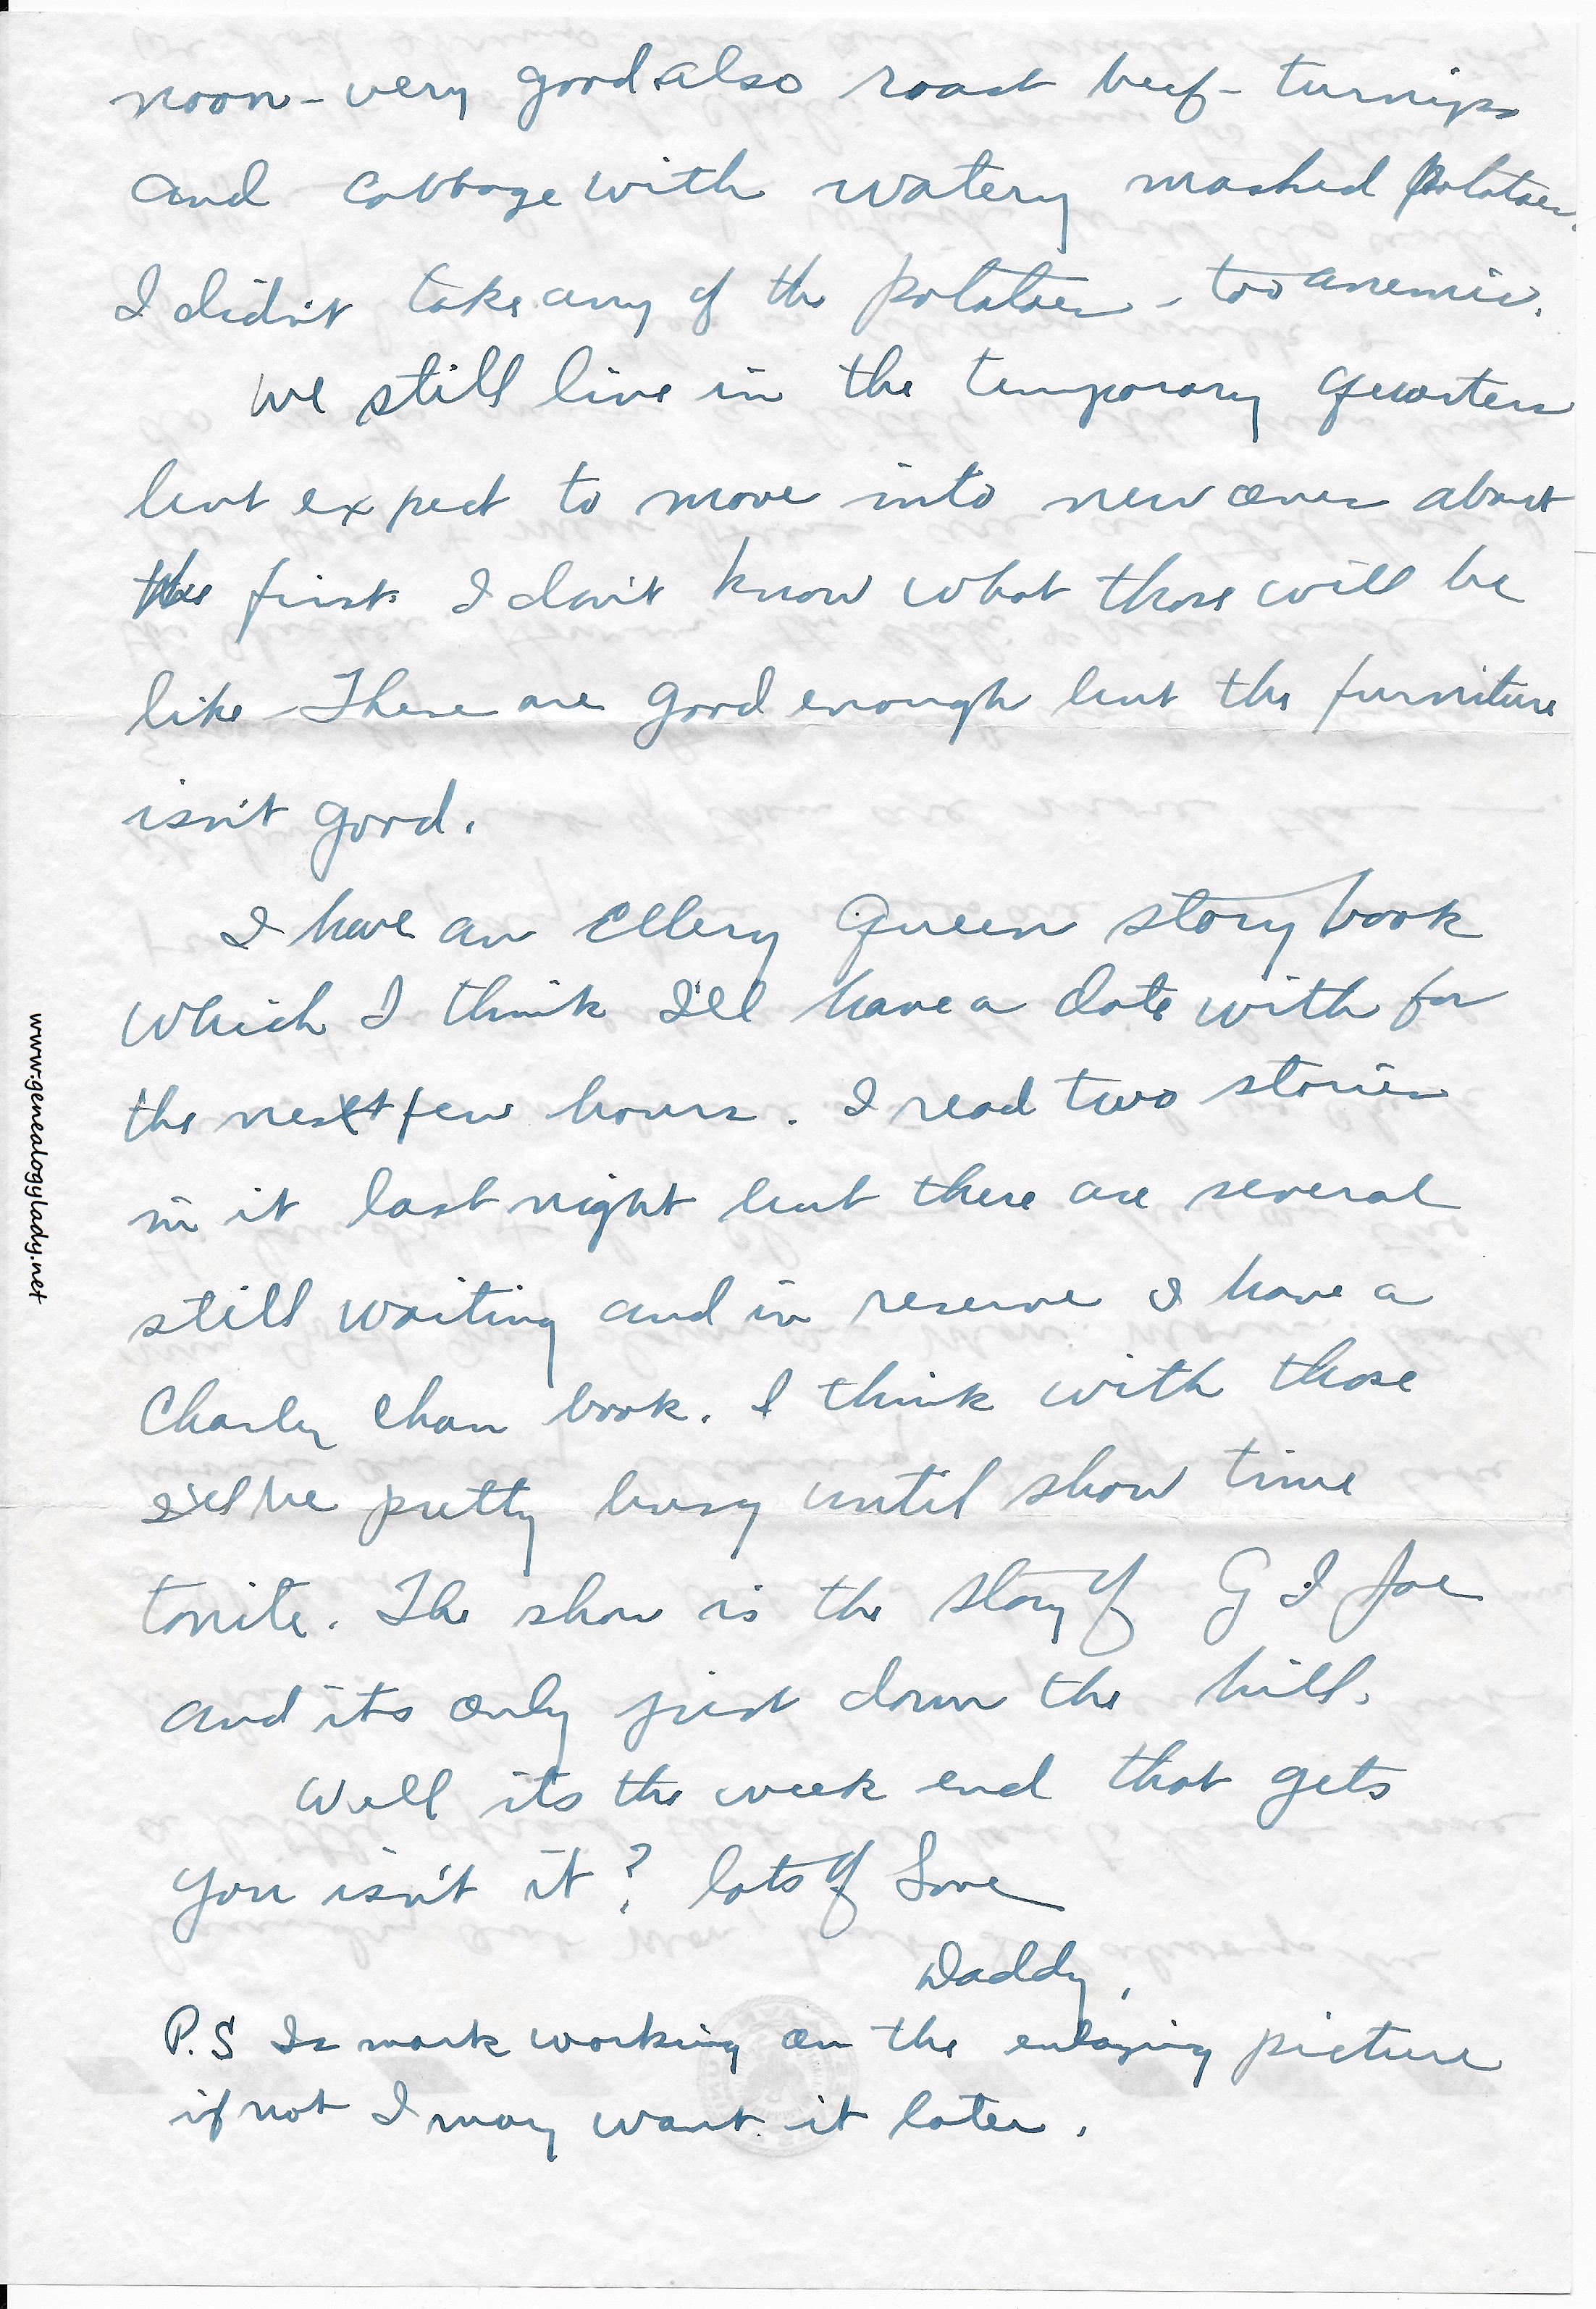 noon - very good also roast beef - turnips
and cabbage with watery mashed potatoes.
I didn't take any of the potatoes - too anemic.
We still live in the temporary quarters
but expect to move into new ones about
the first. I don't know what those will be
like - These are good enough but the furniture
isn't good.
I have an Ellery Queen story book
which I think I'll have a date with for
the next few hours. I read two stories
in it last night but there are several
still waiting and in reserve I have a
Charley Chan book. I think with those
I'll be pretty busy until show time
tonite. The show is the story of G I Joe
and its only just down the hill.
Well its the week end that gets
you isn't it? lots of Love
Daddy,
P.S Is mark working on the enlarging picture
if not I may want it later.
www.genealogylady.net